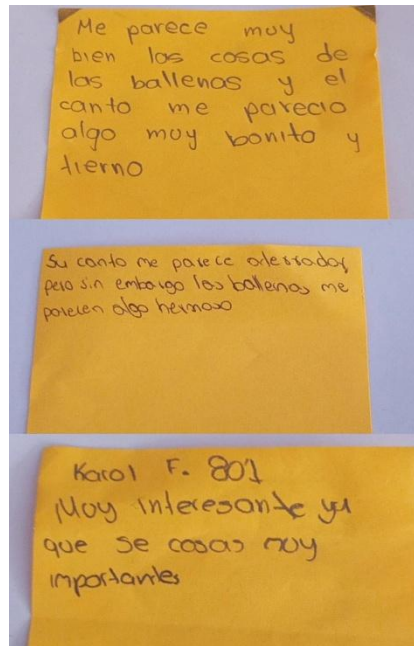 Me parece muy
bien las cosas de
las ballenas y el
canto me parecio
algo muy bonito y
tierno
Su canto me parece aterrador
pero sin embargo las ballenas me
parecen algo hermoso
Karol F. 801
Muy interesante ya
que se cosas muy
importantes